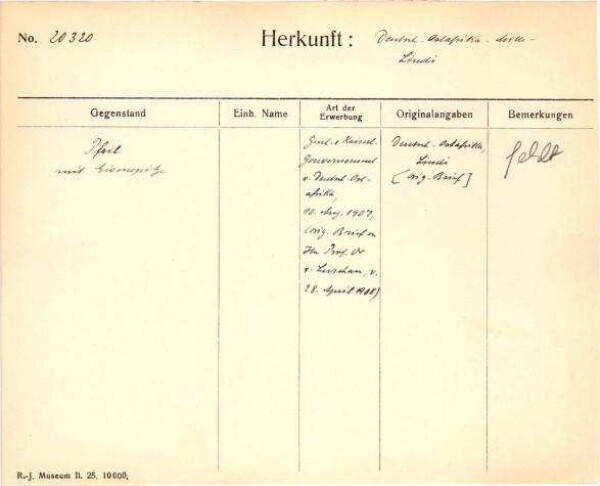 No. 20320 Herkunft: Deutsch-Ostafrika-
Lindi
Gegenstand Einh. Name Art der Erwerbung Originalangaben Bemerkungen
Pfeil
mit Eisenspitze
v. Kaiserl.
Gouvernement
v. Deutsch Ost-
afrika,
10. Aug. 1907,
(orig. Brief an
Hn Prof. Dr
v. Luschan, v.
28. April 1908)
Deutsch-Ostafrika,
Lindi
[orig. Brief]
fehlt
R.-J. Museum II. 25, 10000,